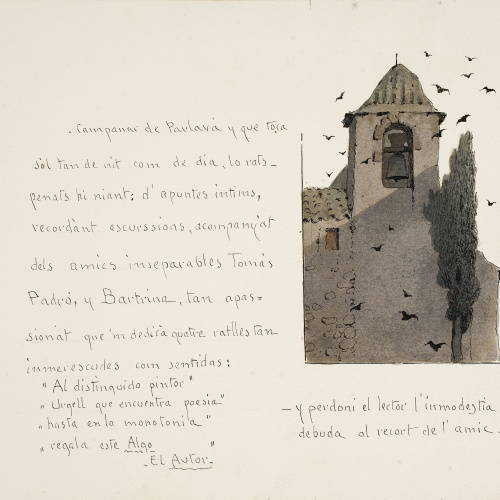 . Campanar de Parlavá y que toca
sol tan de nit com de dia, lo rats-
penats hi niant; d'apuntes intims,
recordànt escurssions, acompanyat
dels amics inseparables Tomás
Padró, y Bartrina, tan apas=
sionat que'm dedicà quatre ratlles tan
inmerescudes com sentidas:
"Al distinguido pintor"
"Urgell que encuentra poesia"
"hasta en la monotonia"
"regala este Algo "
-El Autor.-
— y perdoni el lector l'inmodestia
debuda al recort de l'amic.